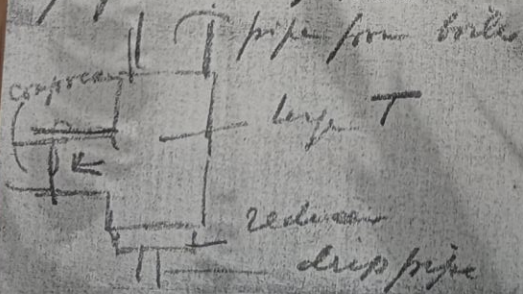 pipe from boile
compres
large T
reducer
drip pipe